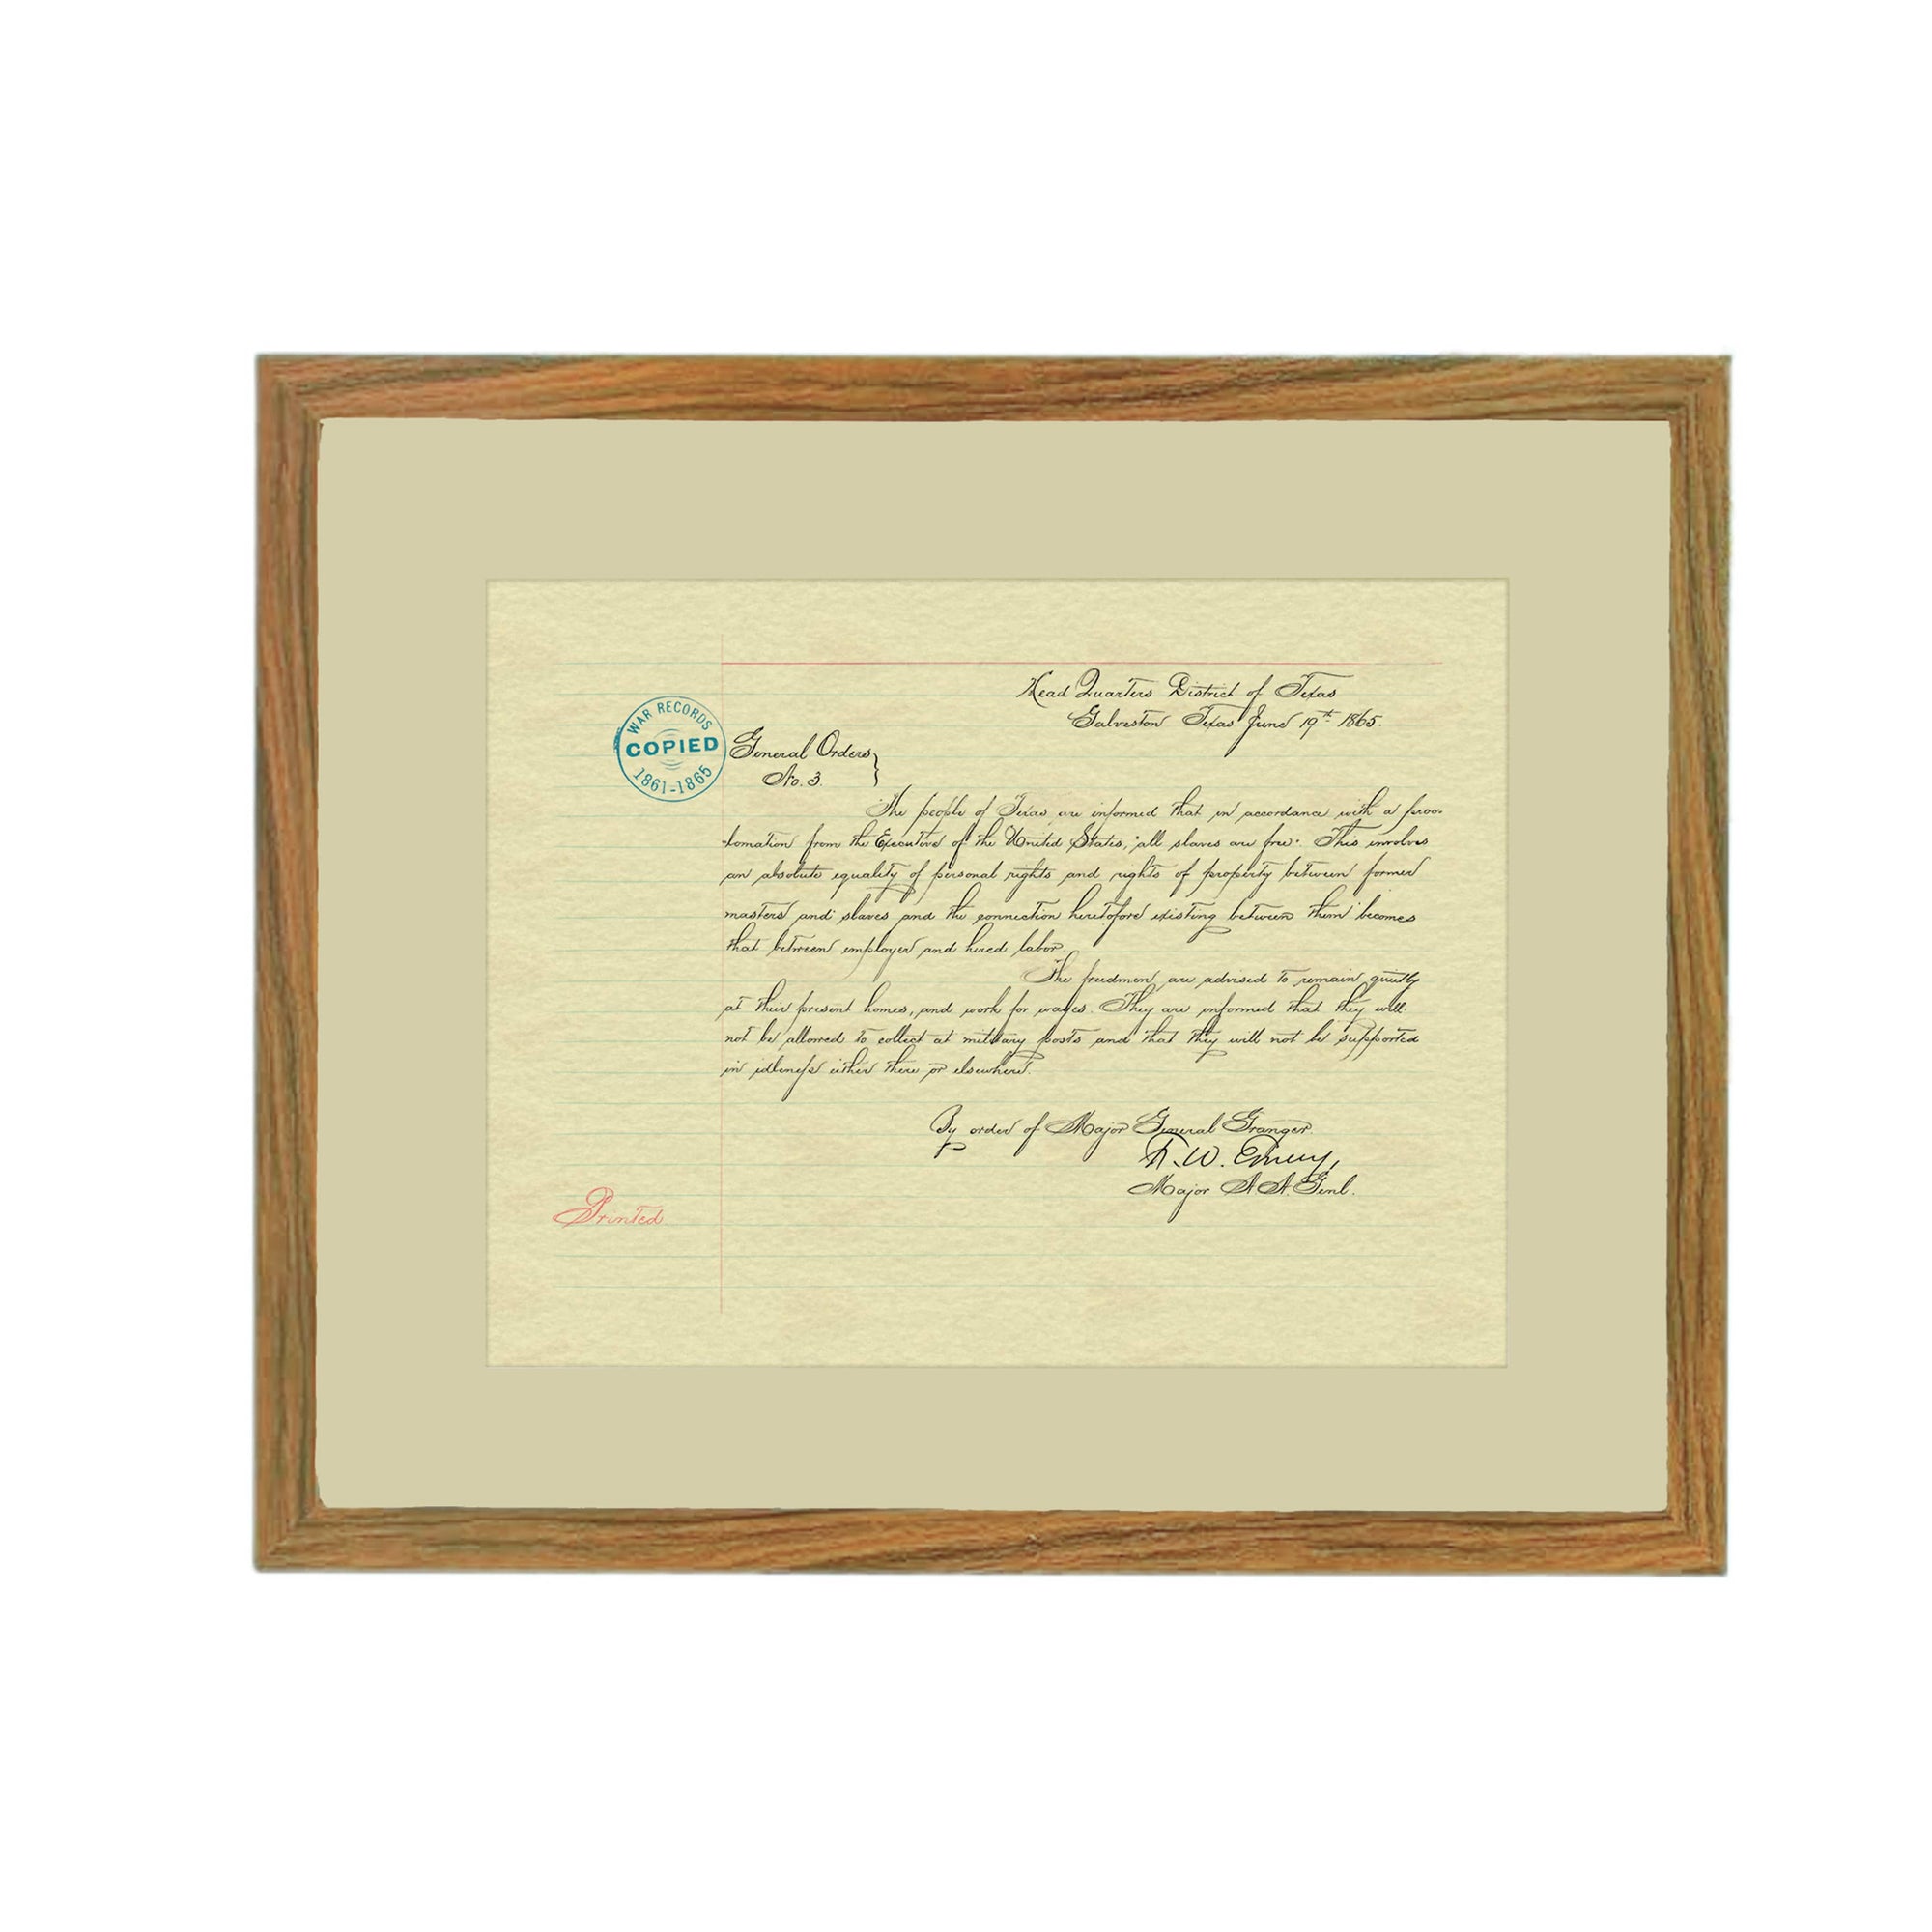 Head Quarters District of Texas
Galveston Texas June 19th 1865.
WAR RECORDS
COPIED
1861-1865
General Orders
No. 3.
The people of Texas are informed that in accordance with a proc-
-lamation from the Executive of the United States, "all slaves are free". This involves
an absolute equality of personal rights and rights of property between former
masters and slaves and the connection heretofore existing between them becomes
that between employer and hired labor.
The freedmen are advised to remain quietly
at their present homes, and work for wages. They are informed that they will
not be allowed to collect at military posts and that they will not be supported
in idleness either there or elsewhere.
By order of Major General Granger.
F. W. Emery,
Major A.A. Genl.
Printed